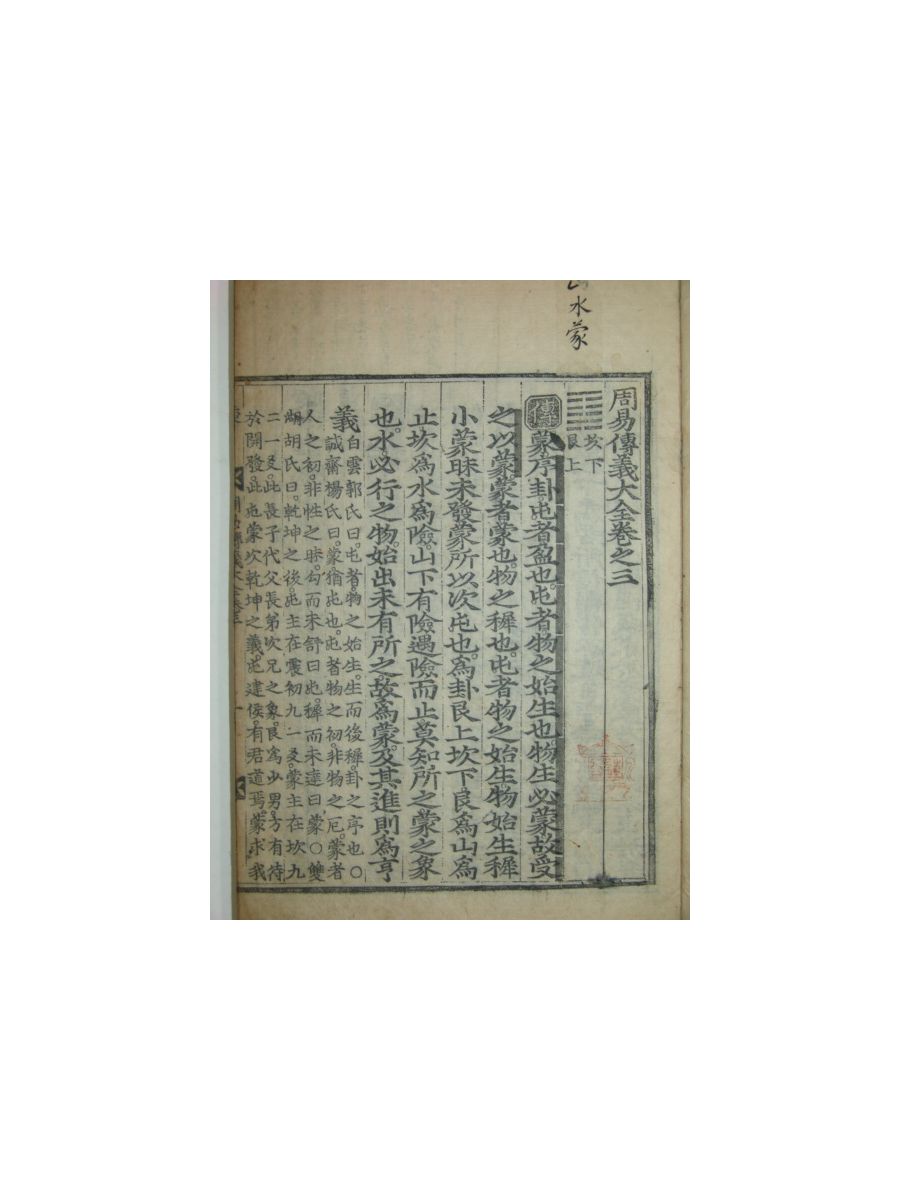 水蒙
周易傳義大全卷之三
坎下
艮上
傳蒙序卦屯者盈也屯者物之始生也物生必蒙故受
之以蒙蒙者蒙也物之穉也屯者物之始生物始生穉
小蒙昧未發蒙所以次屯也爲卦艮上坎下艮爲山爲
止坎爲水爲險山下有險遇險而止莫知所之蒙之象
也水必行之物始出未有所之故爲蒙及其進則爲亨
義
白雲郭氏曰屯者物之始生生而後穉卦之序也○
誠齋楊氏曰蒙猶屯也屯者物之初非物之厄蒙者
人之初非性之昧勾而未舒曰屯穉而未達曰蒙○雙
湖胡氏曰乾坤之後屯主在震初九一爻蒙主在坎九
二一爻此長子代父長弟次兄之象艮爲少男方有待
於開發此屯蒙次乾坤之義屯建侯有君道焉蒙求我